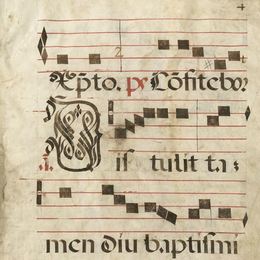 4
Xp̄to. ps Cōfitebor
Distulit ta⸗
men diu baptismi